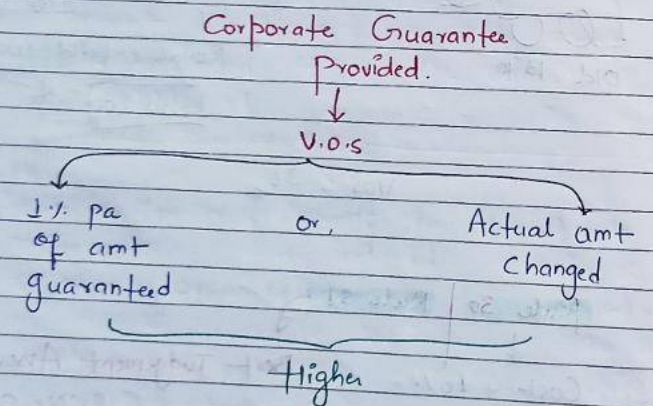 Corporate Guarantee
Provided.
V.O.S
1% pa
of amt
guaranteed
or,
Actual amt
Changed
Higher